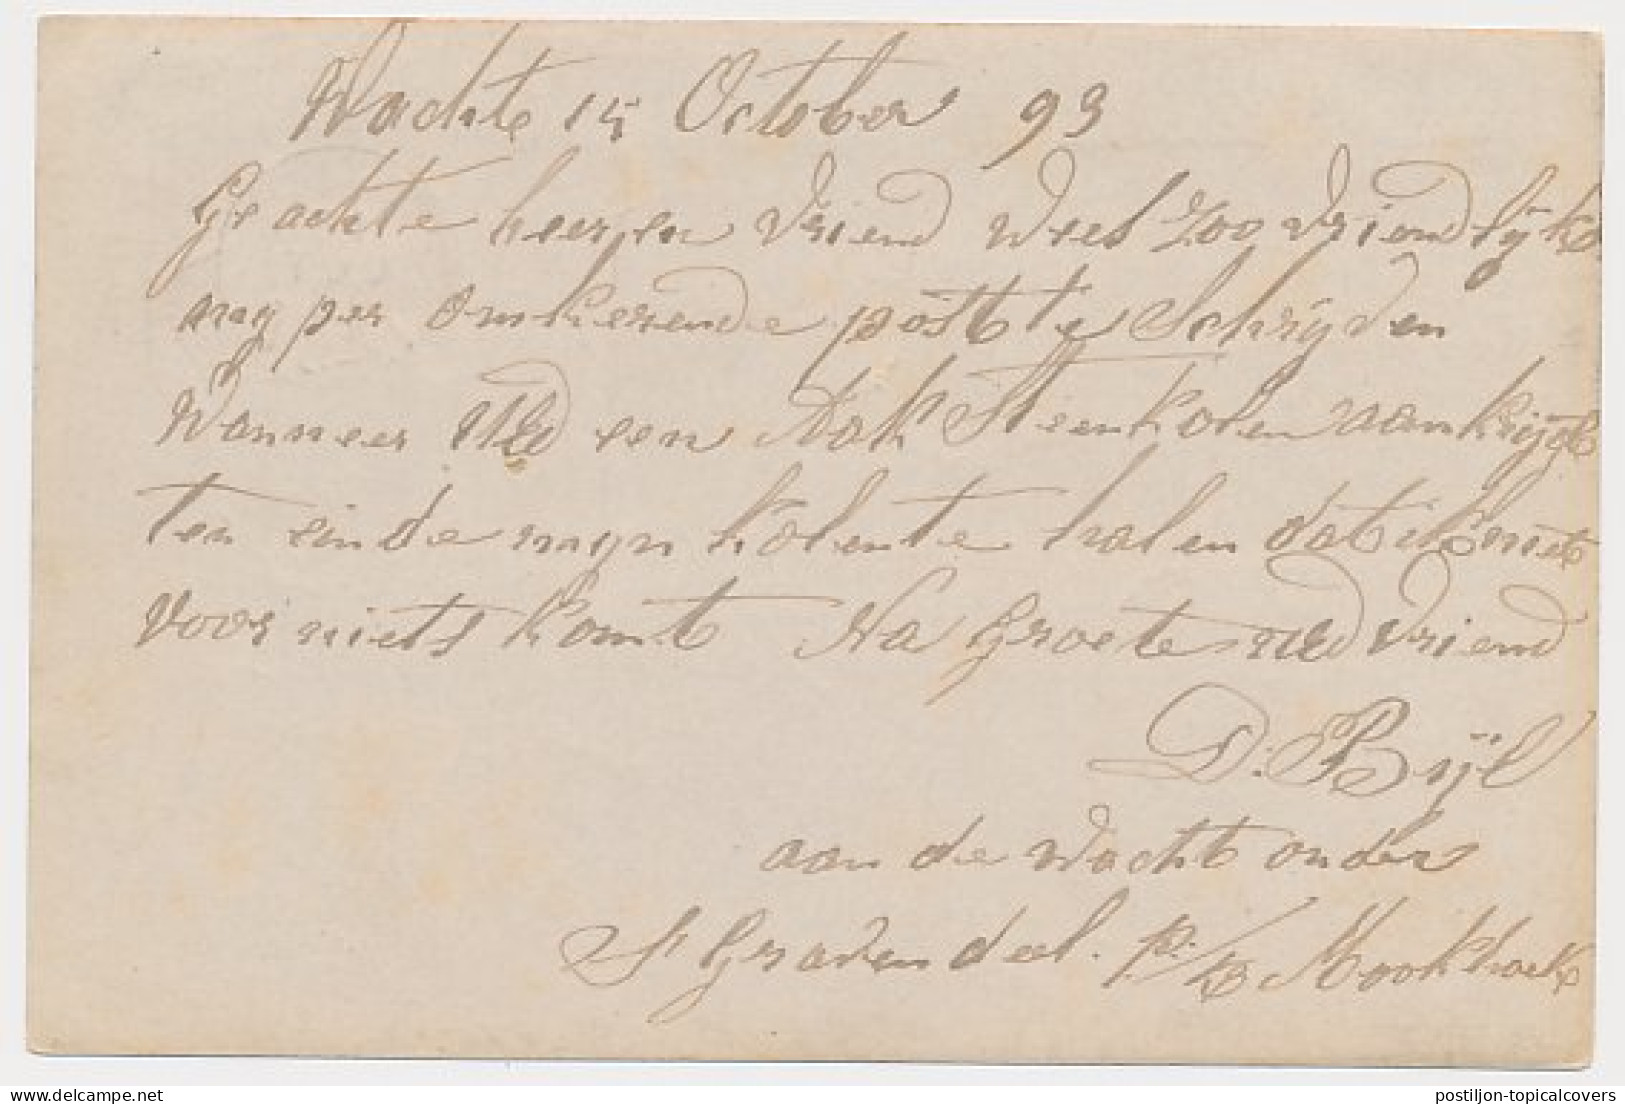 Wachte 15 October 93
Geachte heer en Vriend Wees zoo Vriendlijk
mij per Omkerende postt te Schrijven
Wanneer UEd een Aak Steenkolen aankrijgt
ten einde mijn Kolen te halen dat ik niet
voor niets komt Na Groete UEd Vriend
D. Bijl
aan de Wacht onder
S Gravendeel. p/o Mookhoek
postiljon-topicalcovers